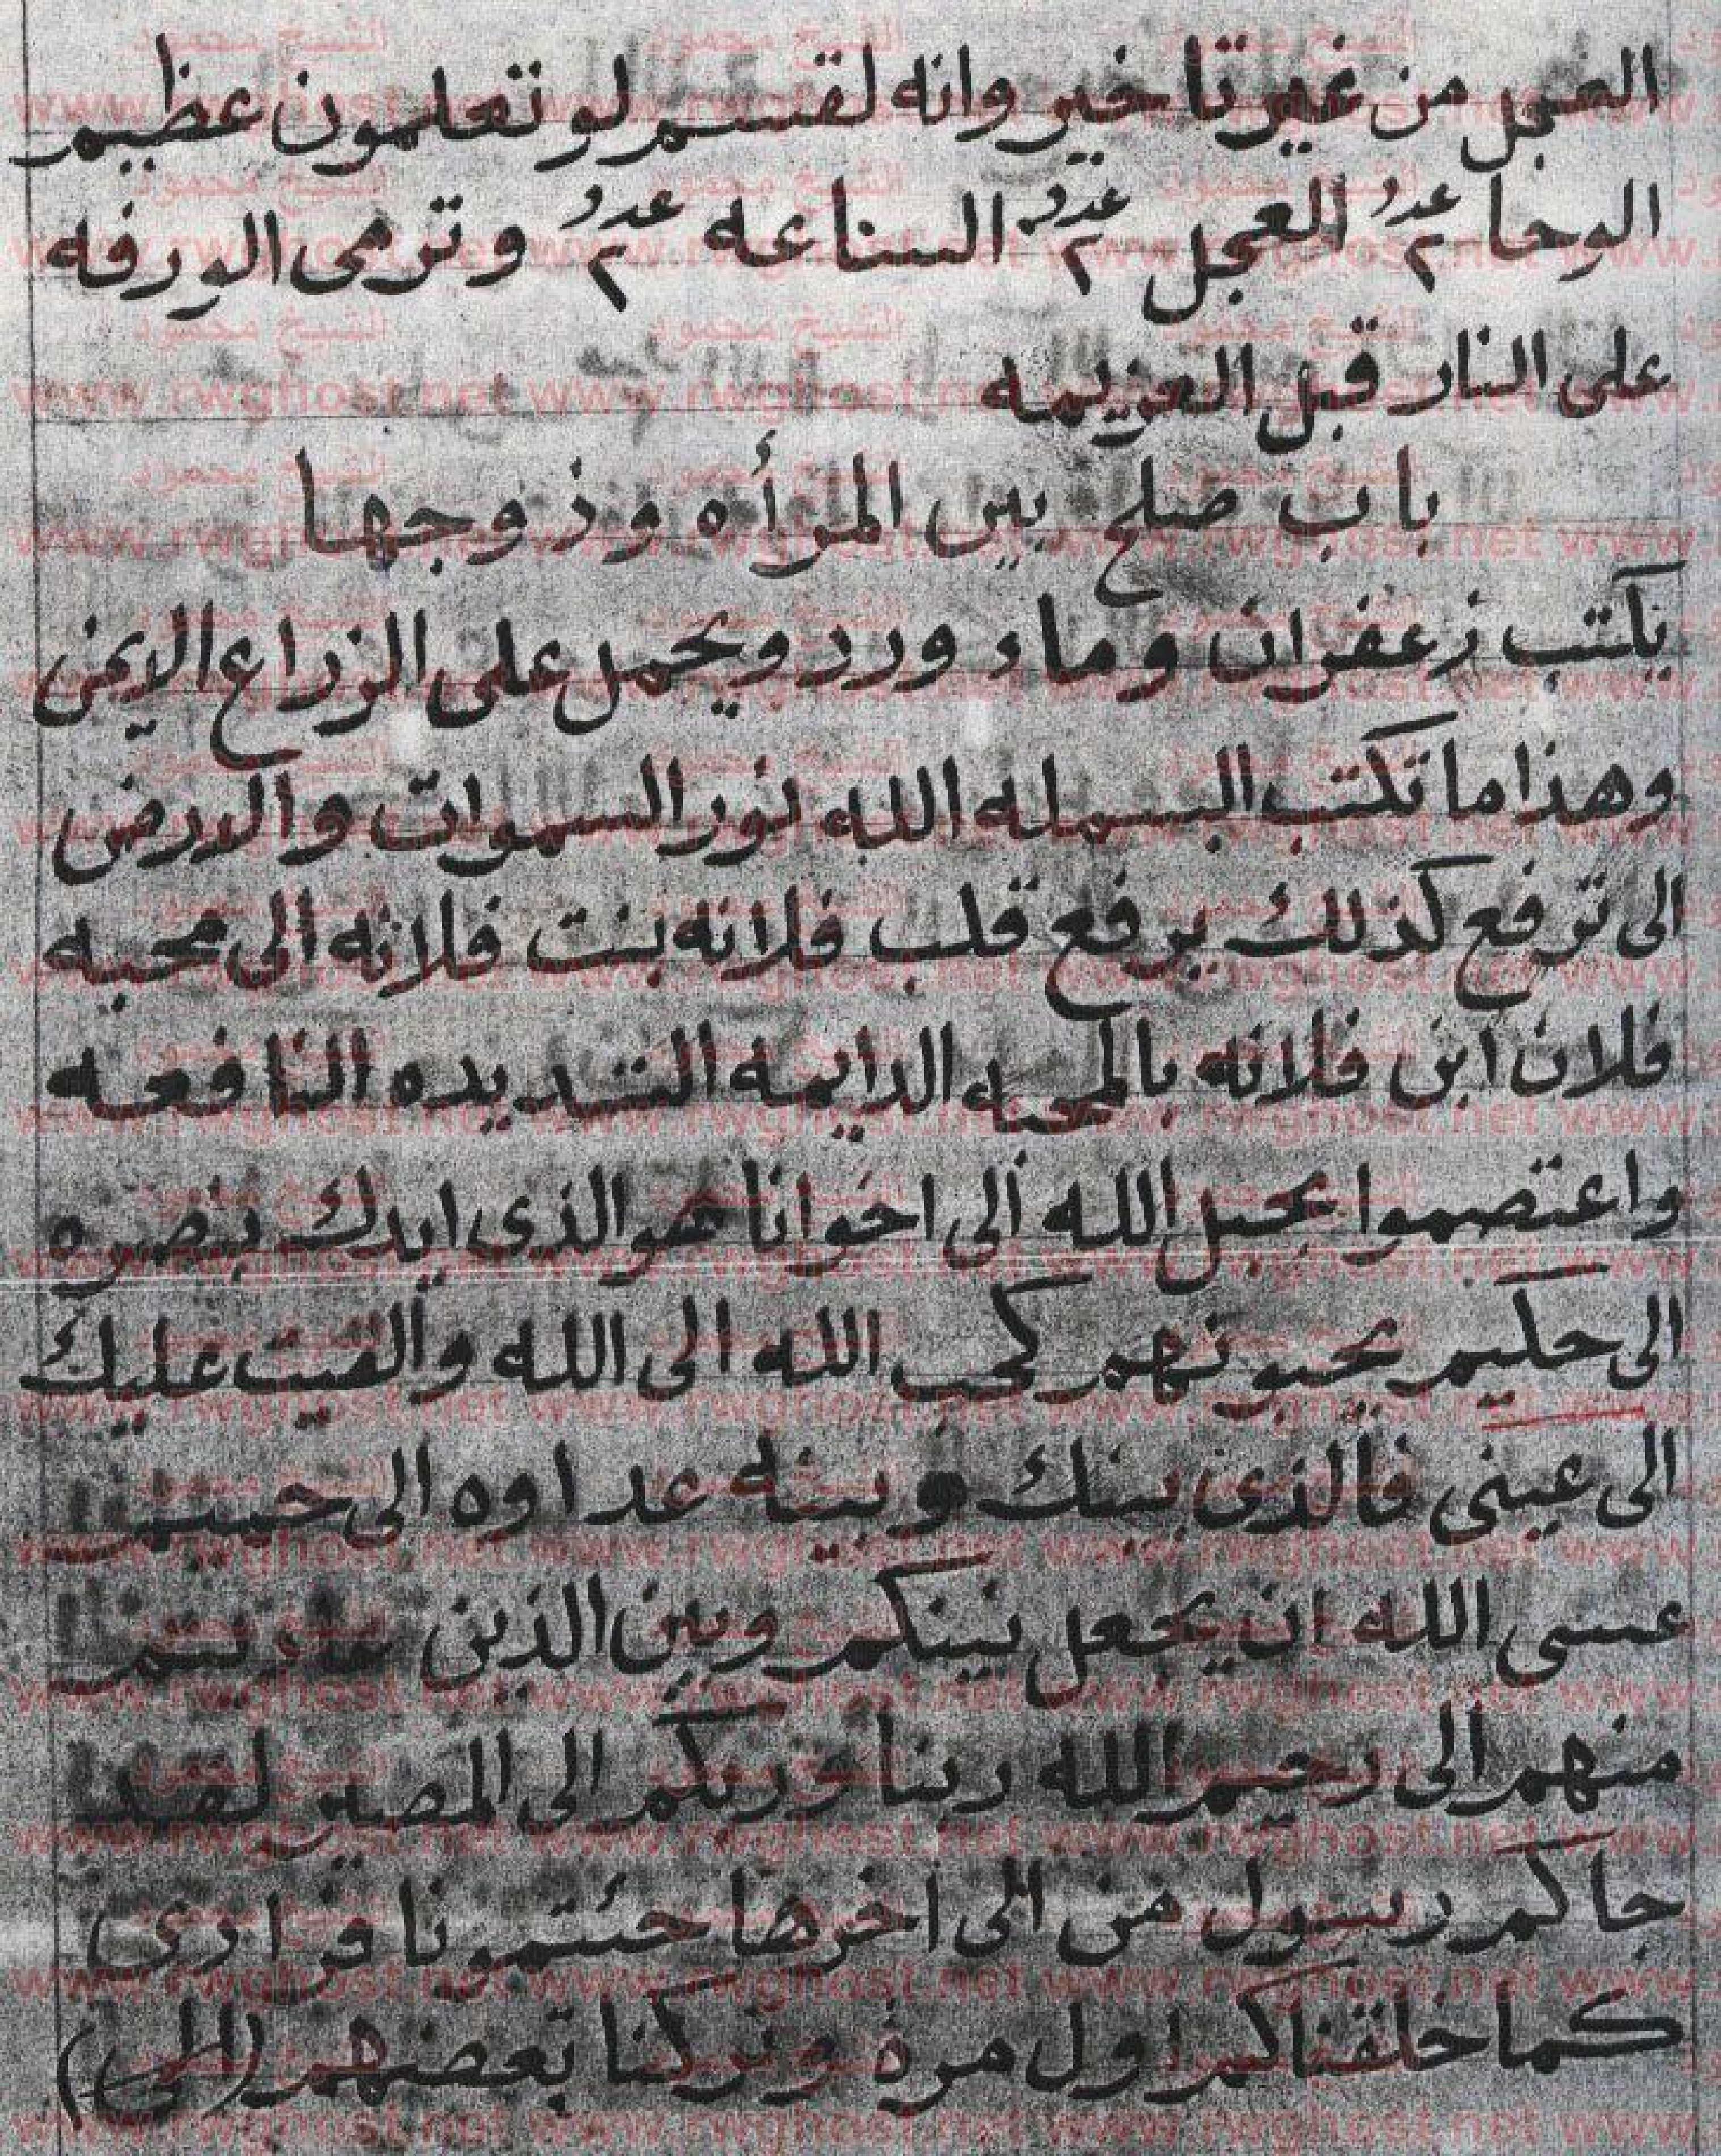 العجل من غير تاخير وانه لقسم لو تعلمون عظيم
الوحا عدد ٢ العجل عدد ٢ الساعه عدد ٢ وترمى الورقه
على النار قبل العزيمه
باب صلح بين المرأه وزوجها
يكتب زعفران وماء ورد ويحمل على الزراع الايمن
وهذا ما تكتب البسمله الله نور السموات والارض
الى ترفع كذلك يرفع قلب فلانه بنت فلانه الى محبه
فلان ابن فلانه بالمحبه الدايمه الشديده النافعه
واعتصموا بحبل الله الى اخوانا هو الذى ايدك بنصره
الى حكيم يحبونهم كحب الله الى الله والقيت عليك
الى عينى فالذى بينك وبينه عداوه الى حميم
عسى الله ان يجعل بينكم وبين الذين عاديتم
منهم الى رحيم الله ربنا وربكم الى المصير لقد
جاكم رسول من الى اخرها جئتمونا فرادى
كما خلقناكم اول مرة وتركنا بعضهم
www.rwghost.net
الشيخ محمود